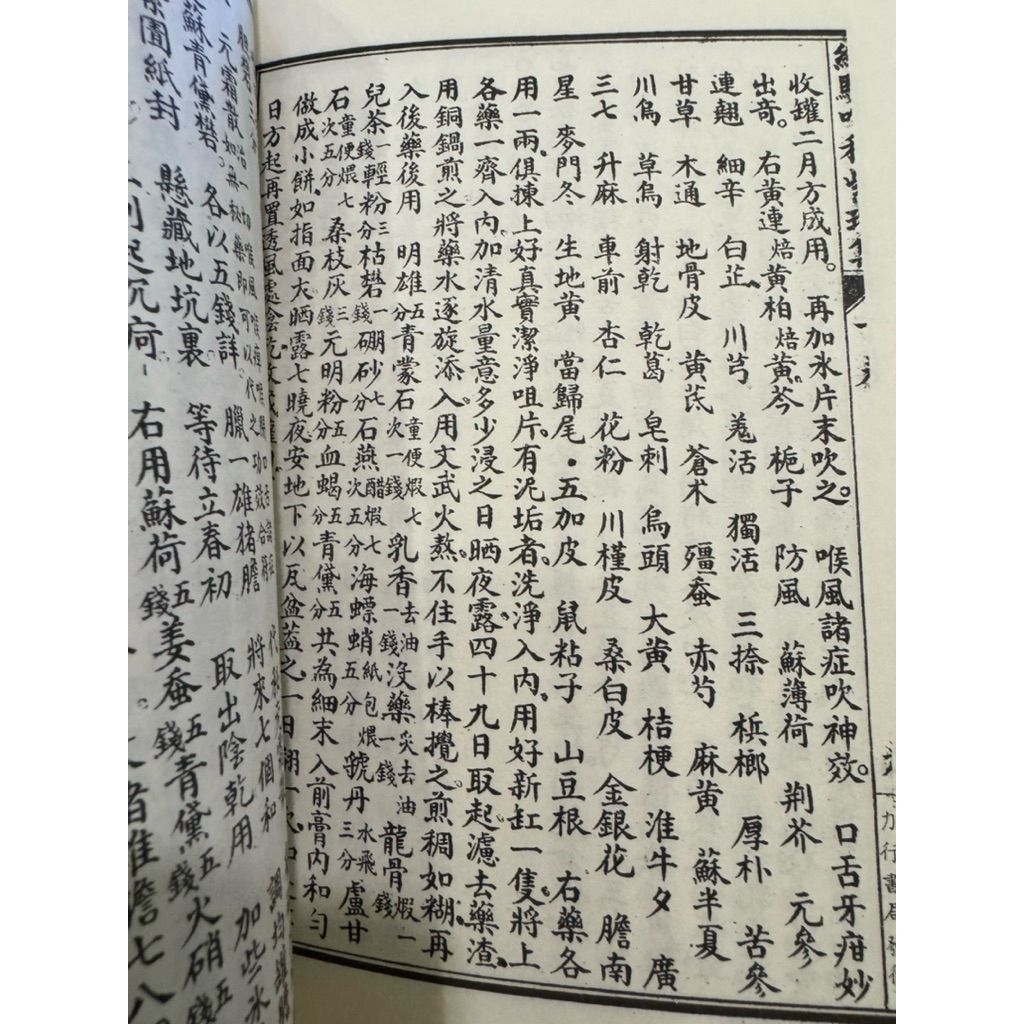 收罐二月方成用。 再加氷片末吹之。 喉風諸症吹神效。 口舌牙疳妙
出奇。 右黃連焙黃柏焙黃芩 梔子 防風 蘇薄荷 荆芥 元參
連翹 細辛 白芷 川芎 羗活 獨活 三捺 梹榔 厚朴 苦參
甘草 木通 地骨皮 黃芪 蒼术 殭蚕 赤芍 麻黃 蘇半夏
川烏 草烏 射乾 乾葛 皂刺 烏頭 大黃 桔梗 淮牛夕 廣
三七 升麻 車前 杏仁 花粉 川槿皮 桑白皮 金銀花 膽南
星 麥門冬 生地黃 當歸尾・五加皮 鼠粘子 山豆根 右藥各
用一兩俱揀上好真實潔淨咀片有泥垢者洗淨入內用好新缸一隻將上
各藥一齊入內加清水量意多少浸之日晒夜露四十九日取起濾去藥渣
用銅鍋煎之將藥水逐旋添入用文武火熬不住手以棒攪之煎稠如糊再
入後藥後用 明雄五分青蒙石童便煆七次一錢 乳香去油一錢沒藥炙去油一錢龍骨煆一錢
兒茶一錢輕粉三分枯礬一錢硼砂七分石燕醋煆七次五分 海螵蛸紙包煨五分 號丹水飛三分盧甘
石童便煨七次五分 桑枝灰三錢元明粉五分血蝎五分青黛五分共為細末入前膏內和勻
做成小餅如指面大晒露七曉夜安地下以瓦盆蓋之一日翻一次
日方起再置透風處陰乾收
各以五錢詳 臘一雄猪膽 將來七個和
蘇青黛礬。
懸藏地坑裏 等待立春初 取出陰乾用 加些氷
紙封
右用蘇荷五錢姜蚕五錢青黛五錢火硝五錢